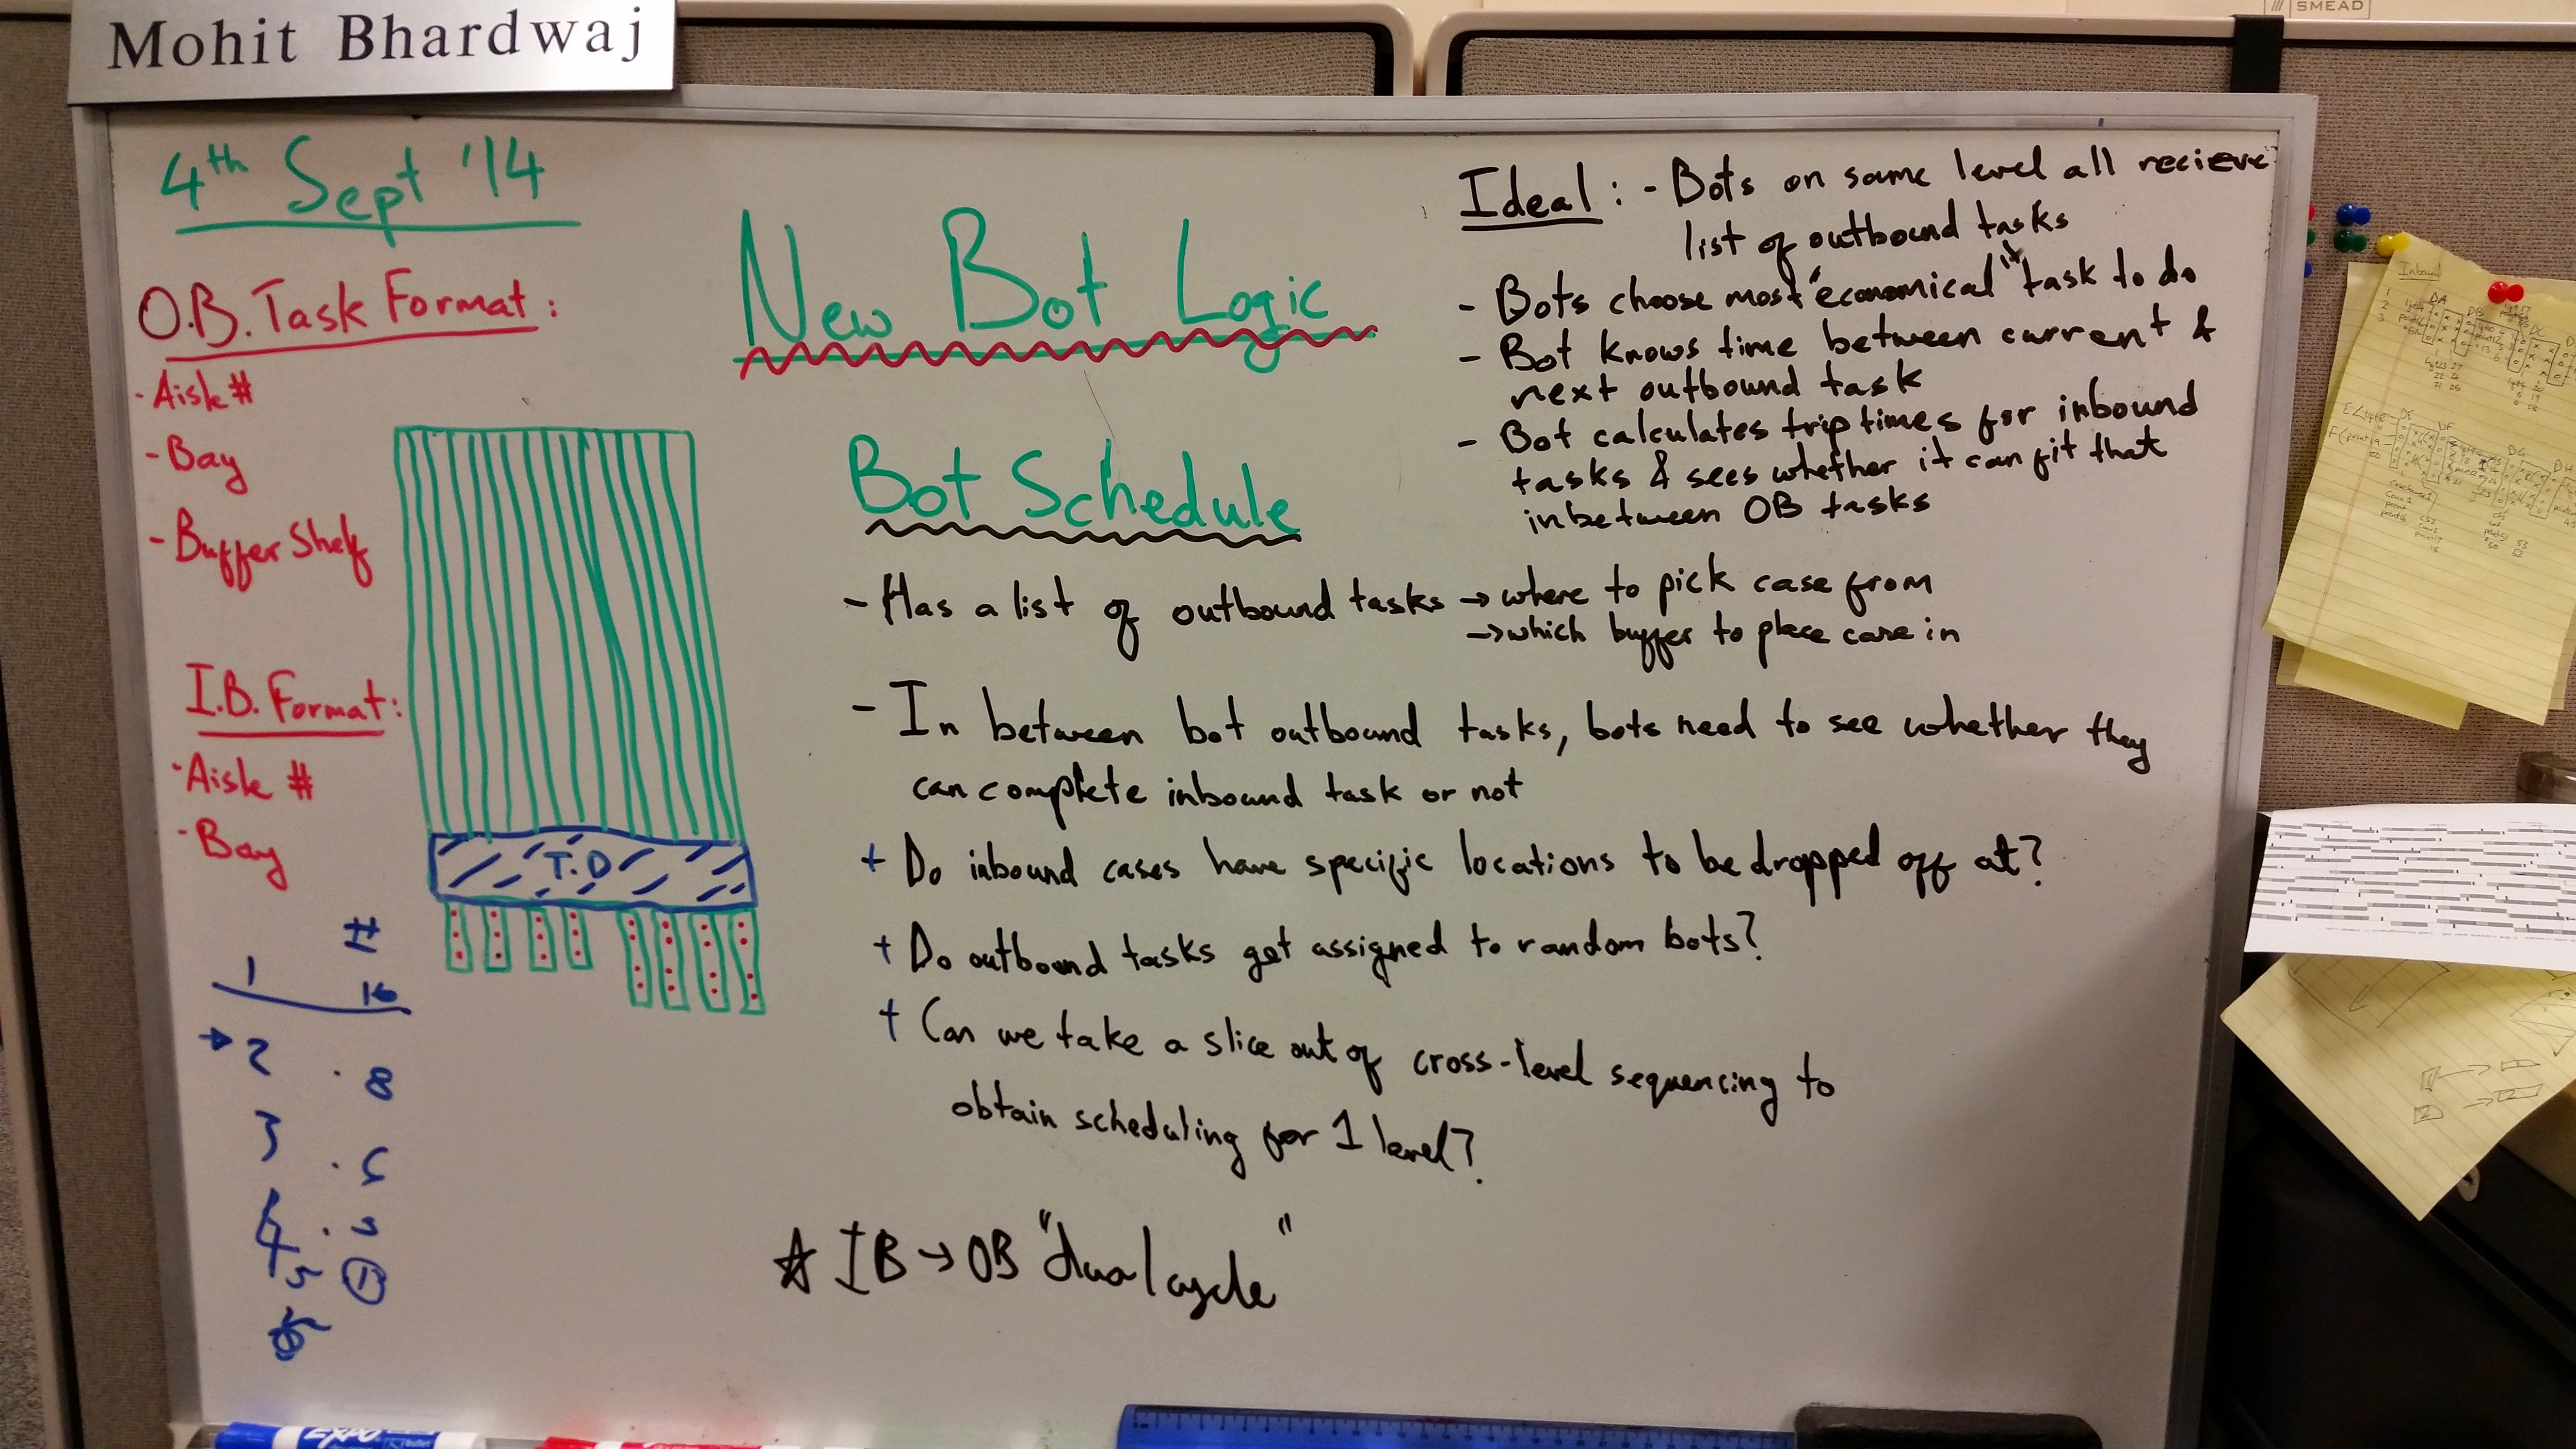 Mohit Bhardwaj
SMEAD
4th Sept '14
O.B. Task Format:
- Aisle #
- Bay
- Buffer Shelf
I.B. Format:
- Aisle #
- Bay
#
1 16
→ 2 8
3
4
5 1
T.D
New Bot Logic
Bot Schedule
Ideal: - Bots on same level all recieve
list of outbound tasks
- Bots choose most "economical" task to do
- Bot knows time between current &
next outbound task
- Bot calculates trip times for inbound
tasks & sees whether it can fit that
inbetween OB tasks
- Has a list of outbound tasks → where to pick case from
→ which buffer to place case in
- In between bot outbound tasks, bots need to see whether they
can complete inbound task or not
+ Do inbound cases have specific locations to be dropped off at?
+ Do outbound tasks get assigned to random bots?
+ Can we take a slice out of cross-level sequencing to
obtain scheduling for 1 level?
☆ IB → OB "dual cycle"
Inbound
EXPO